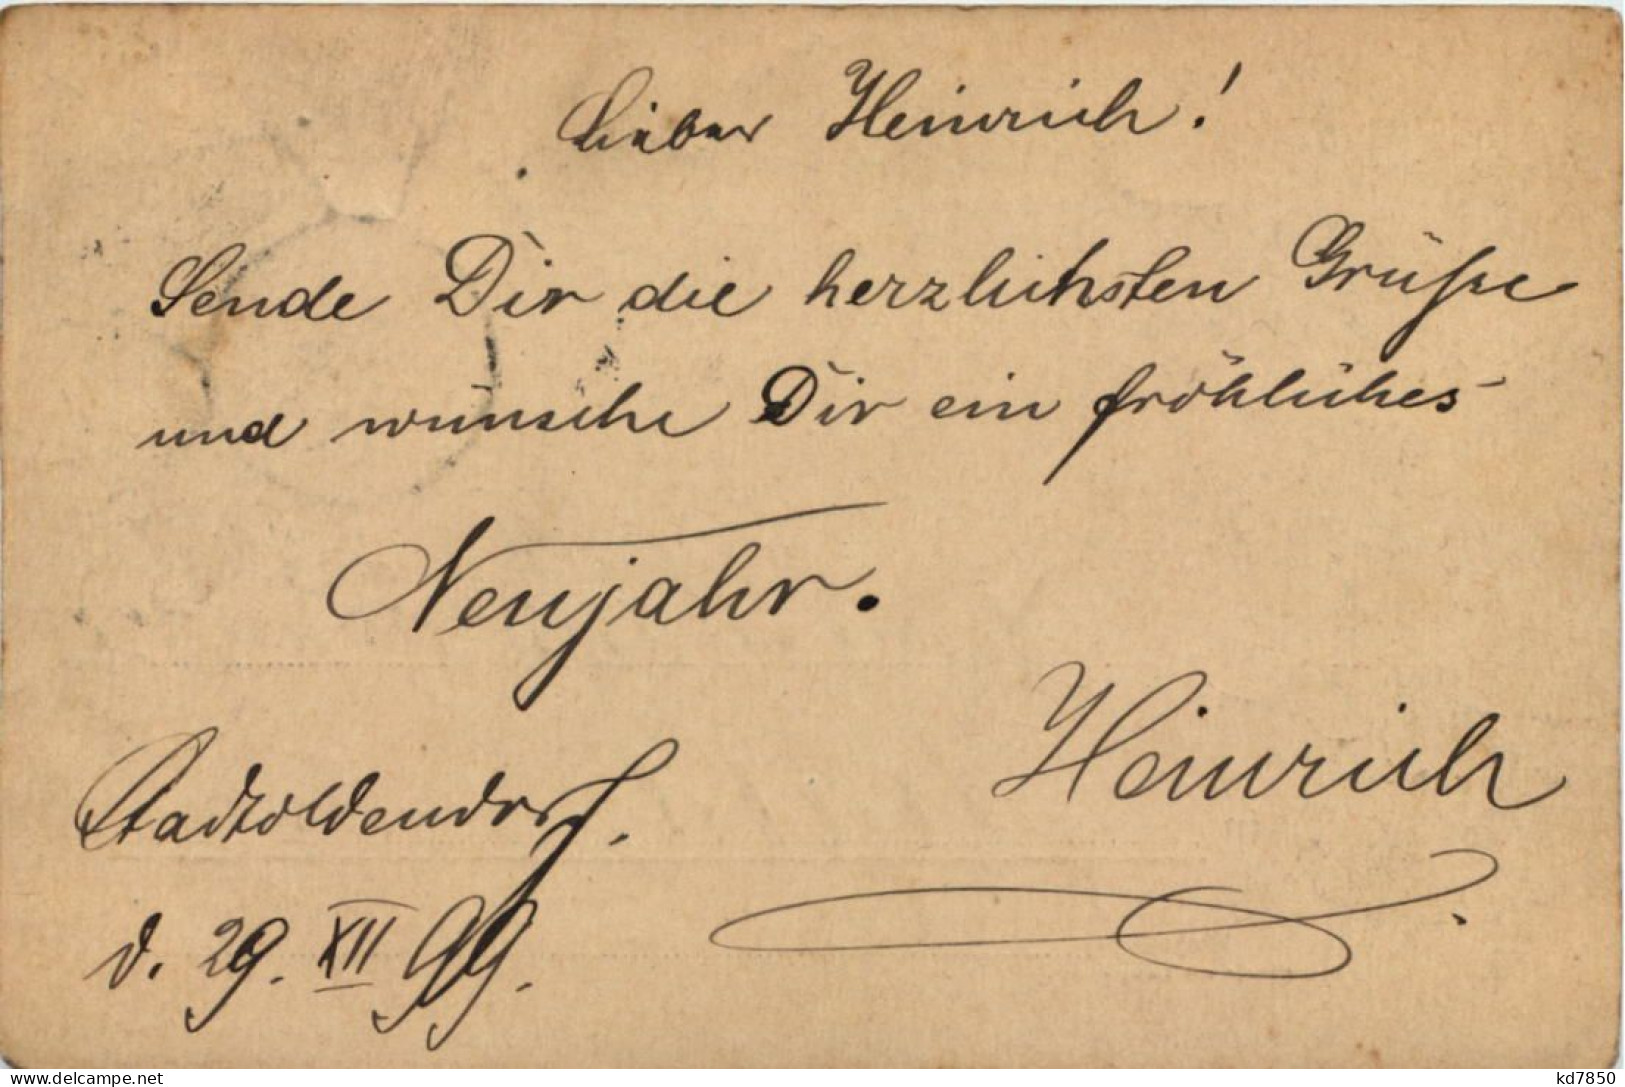 Lieber Heinrich!
Sende Dir die herzlichsten Grüße
und wünsche Dir ein fröhliches
Neujahr.
Heinrich
Stadtoldendorf.
d. 29. XII 99.
www.delcampe.net
kd7850